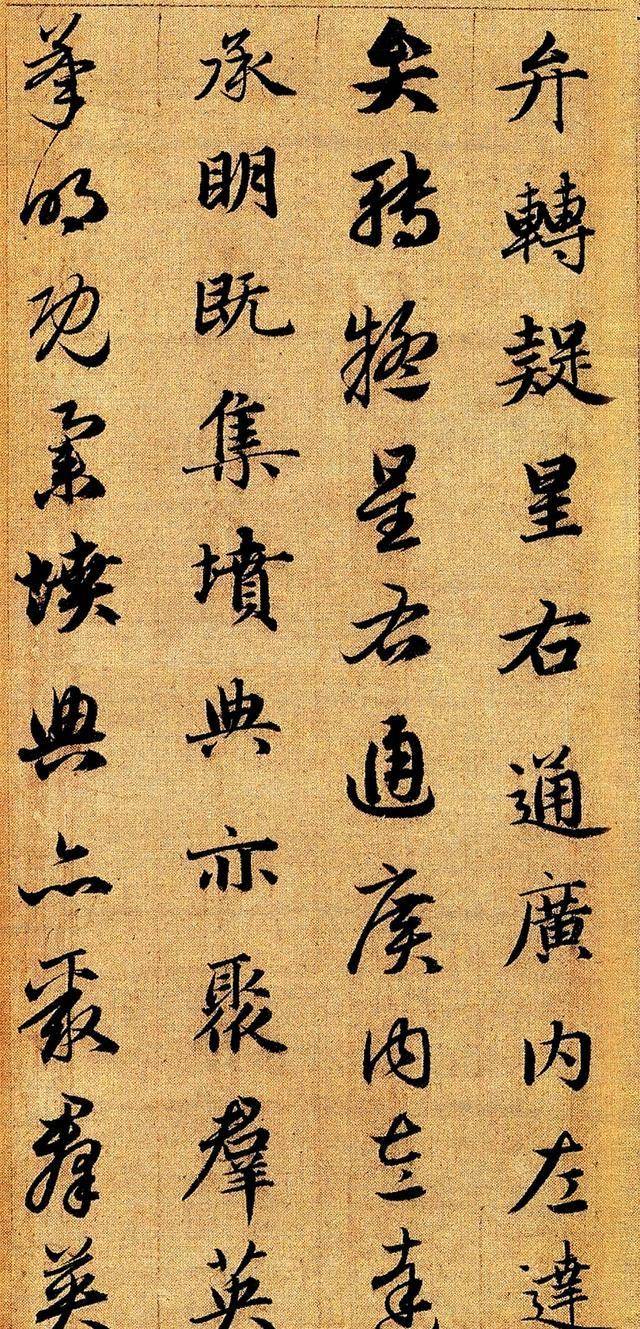 弁轉疑星右通廣内左達
弁轉疑星右通廣内左達
承明既集墳典亦聚羣英
承明既集墳典亦聚羣英